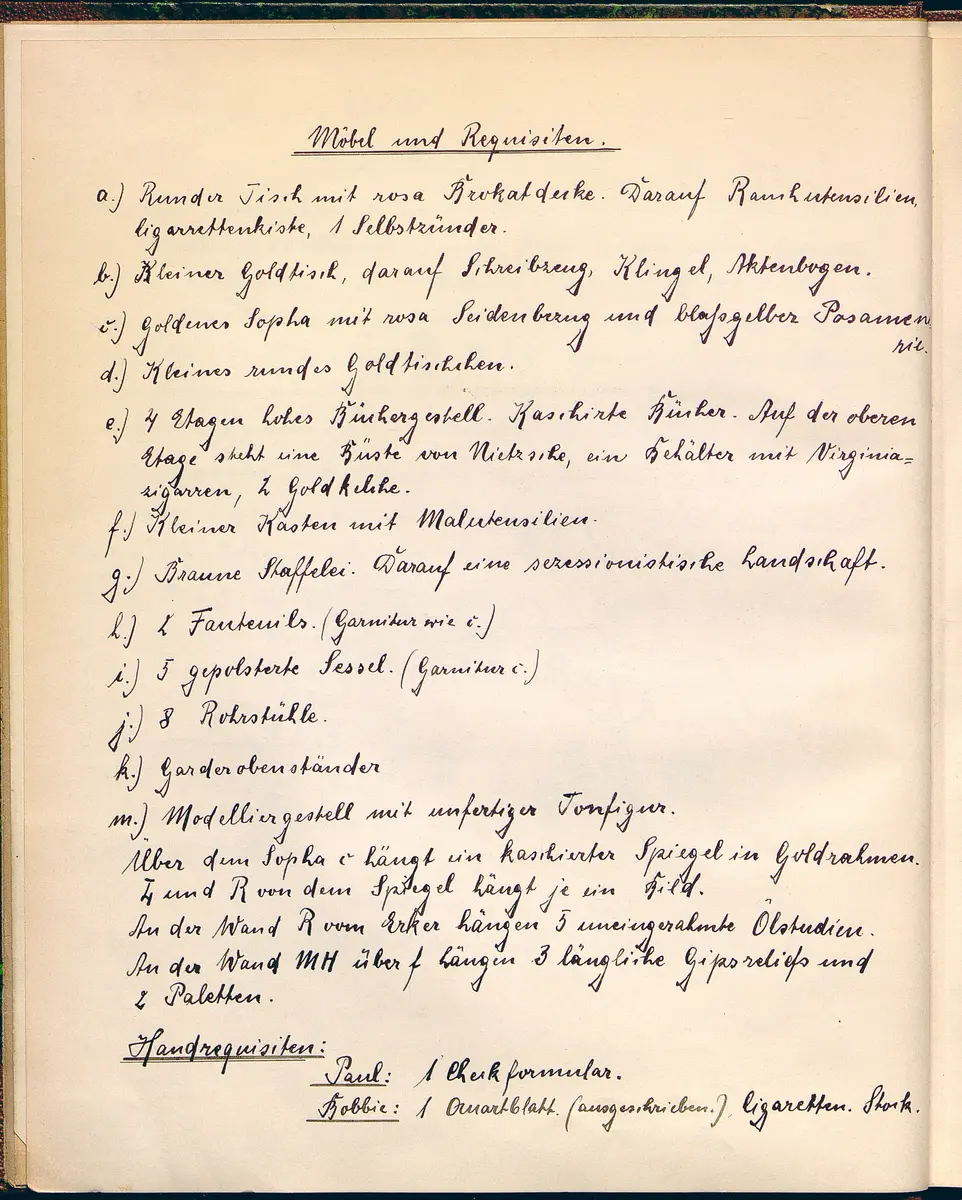 Möbel und Requisiten.
a.) Runder Tisch mit rosa Brokatdecke. Darauf Rauchutensilien,
Cigarrettenkiste, 1 Selbstzünder.
b.) Kleiner Goldtisch, darauf Schreibzeug, Klingel, Aktenbogen.
c.) Goldenes Sopha mit rosa Seidenbezug und blaßgelber Posamen
rie.
d.) Kleines rundes Goldtischchen.
e.) 4 Etagen hohes Büchergestell. Kaschirte Bücher. Auf der oberen
Etage steht eine Büste von Nietzsche, ein Behälter mit Virginia=
zigarren, 2 Goldkelche.
f.) Kleiner Kasten mit Malutensilien.
g.) Braune Staffelei. Darauf eine sezessionistische Landschaft.
h.) 2 Fauteuils. (Garnitur wie c.)
i.) 5 gepolsterte Sessel. (Garnitur c.)
j.) 8 Rohrstühle.
k.) Garderobenständer
m.) Modelliergestell mit unfertiger Tonfigur.
Über dem Sopha c hängt ein kaschierter Spiegel in Goldrahmen.
L und R von dem Spiegel hängt je ein Bild.
An der Wand R vom Erker hängen 5 uneingerahmte Ölstudien.
An der Wand MH über f hängen 3 längliche Gipsreliefs und
2 Paletten.
Handrequisiten:
Paul: 1 Checkformular.
Bobbie: 1 Quartblatt. (ausgeschrieben.), Cigaretten. Stock.